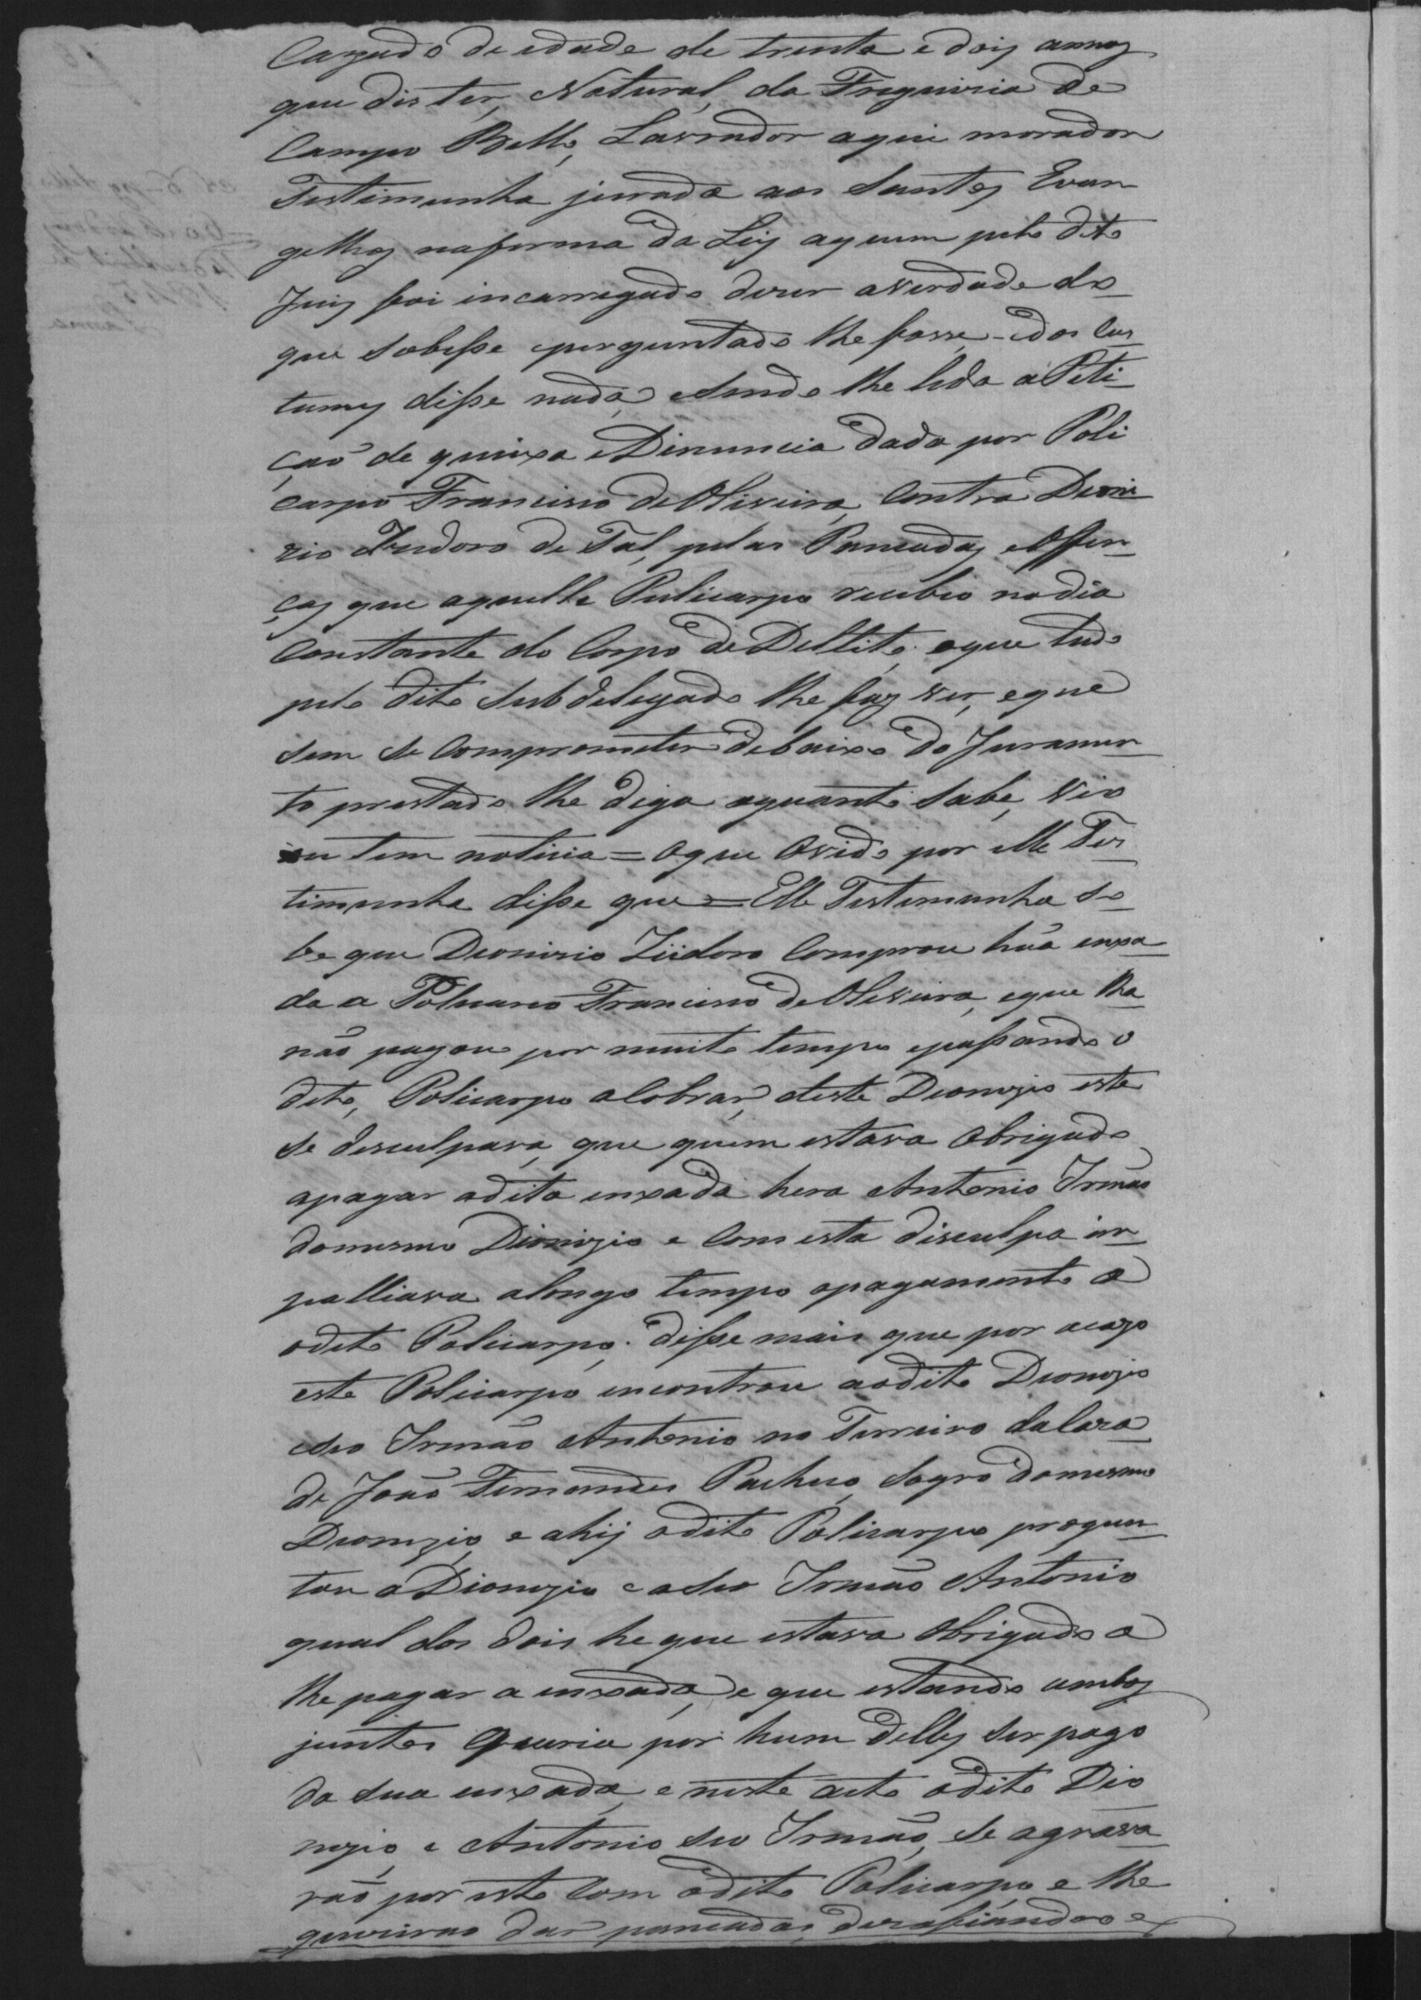 Cazado de edade de trinta e dois annos
que dis ter, Natural da Freguisia de
Campo Bello, Lavrador aqui morador
Testimunha jurada aos Santos Evan
gelhos na forma da Lei aquem pelo dito
Juis foi incarregado dizer averdade do
que Sobesse eperguntado lhe fosse - edos Cus
tumes disse nada, eSendo lhe lida aPeti
çaõ de queixa eDenuncia dada por Poli
carpo Francisco deOliveira, Contra Dioni
zio Izidoro de Tal, pelas Pancadas eOffen
ças que aquelle Policarpo recebeo nodia
Constante do Corpo deDellito, oque tudo
pelo dito Subdelegado lhe faz ver, eque
Sem Se Comprometer debaixo do Juramen
to prestado lhe diga oquanto Sabe, vio
ou tem noticia = oque Ovido por elle Tes
timunha disse que = Elle Testemunha Sa
be que Dionizio Izidoro Comprou huã enxa
da a Policarpo Francisco deOliveira, eque lha
naõ pagou por muito tempo epassando o
dito, Policarpo aCobrar, deste Dionizio este
Se desculpava que quem estava Obrigado
apagar adita enxada hera Antonio Irmão
domesmo Dionizio e Com esta disculpa in
palliava alongo tempo opagamento a
odito Policarpo. disse mais que por acazo
este Policarpo encontrou aodito Dionizio
eSeo Irmaõ Antonio no Terreiro daCaza
de Joaõ Fernandes Pacheco, Sogro domesmo
Dionizio, e ahij odito Policarpo pregun
tou aDionizio e aSeo Irmaõ Antonio
qual dos dois he que estava Obrigado a
lhe pagar a enxada, e que estando ambos
juntos Queria por hum delles Ser pago
da Sua enxada, e neste acto odito Dio
nizio e Antonio Seo Irmaõ, Se agrava
raõ por isto Com odito Policarpo e lhe
quizeraõ dar pancadas, dezafiandoo e